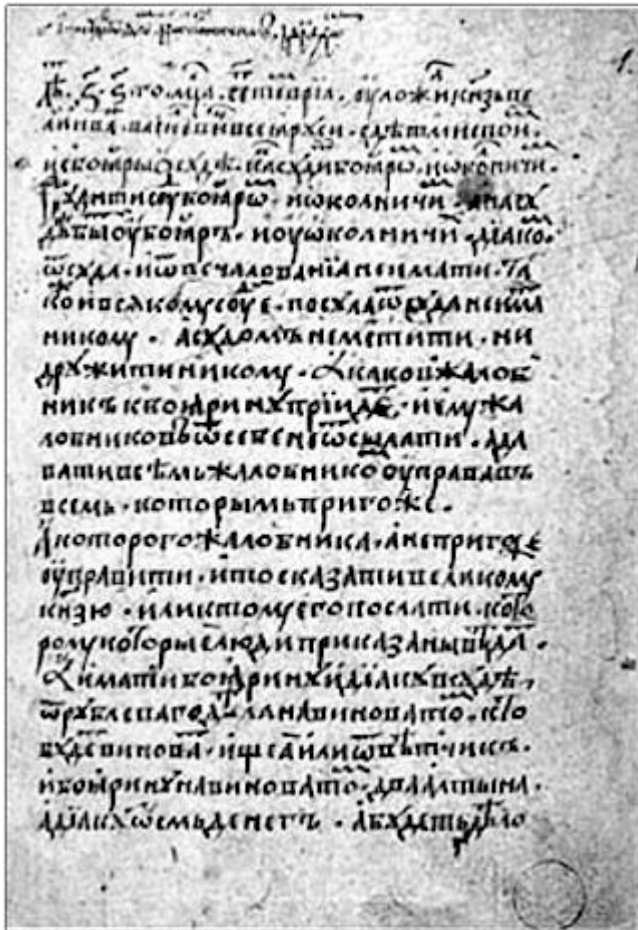 лѣ҃ ҂ЗЅ҃ го. мц҃а. сетеврїа. оуложи кн҃зь ве
ликїи їва васїлїеви всеа рꙋси с дѣтми свои.
и с боꙗры ѡ сꙋдѣ. ка сꙋди боꙗрѡ. и ѡколничи.
Сꙋдити сꙋ боꙗрѡ. и ѡколничи. а на сꙋ
дѣ быти оу боꙗръ. и оу ѡколничи дїако.
ѿ сꙋда. и ѿ печалованїа не имати. та
ко и всякомꙋ сꙋе. посꙋла ѿ сꙋда не има
никомꙋ. а сꙋдомъ не мстити. ни
дрꙋжити никомꙋ. А каков жалоб
никъ к боꙗринꙋ прїидѐ. и емꙋ жа
лобниковъ ѿ себе не ѿсылати. а да
вати всѣмь жалобнико оуправа въ
всемь. которымь пригоже.
А которого жалобника. а не пригоже
оуправити. и то сказати великомꙋ
кн҃зю. или к томꙋ его послати. кото
ромꙋ которые люди приказаны вѣда.
А имати боꙗринꙋ и дїакꙋ в сꙋдѣ,
ѿ рꙋблеваго дѣла на виновато. кто
бꙋде винова. ищеа или ѿвѣтчикъ.
и боꙗринꙋ на виновато. два алтына.
а дїакꙋ ѡсмь денегъ. а бꙋдеть дѣло